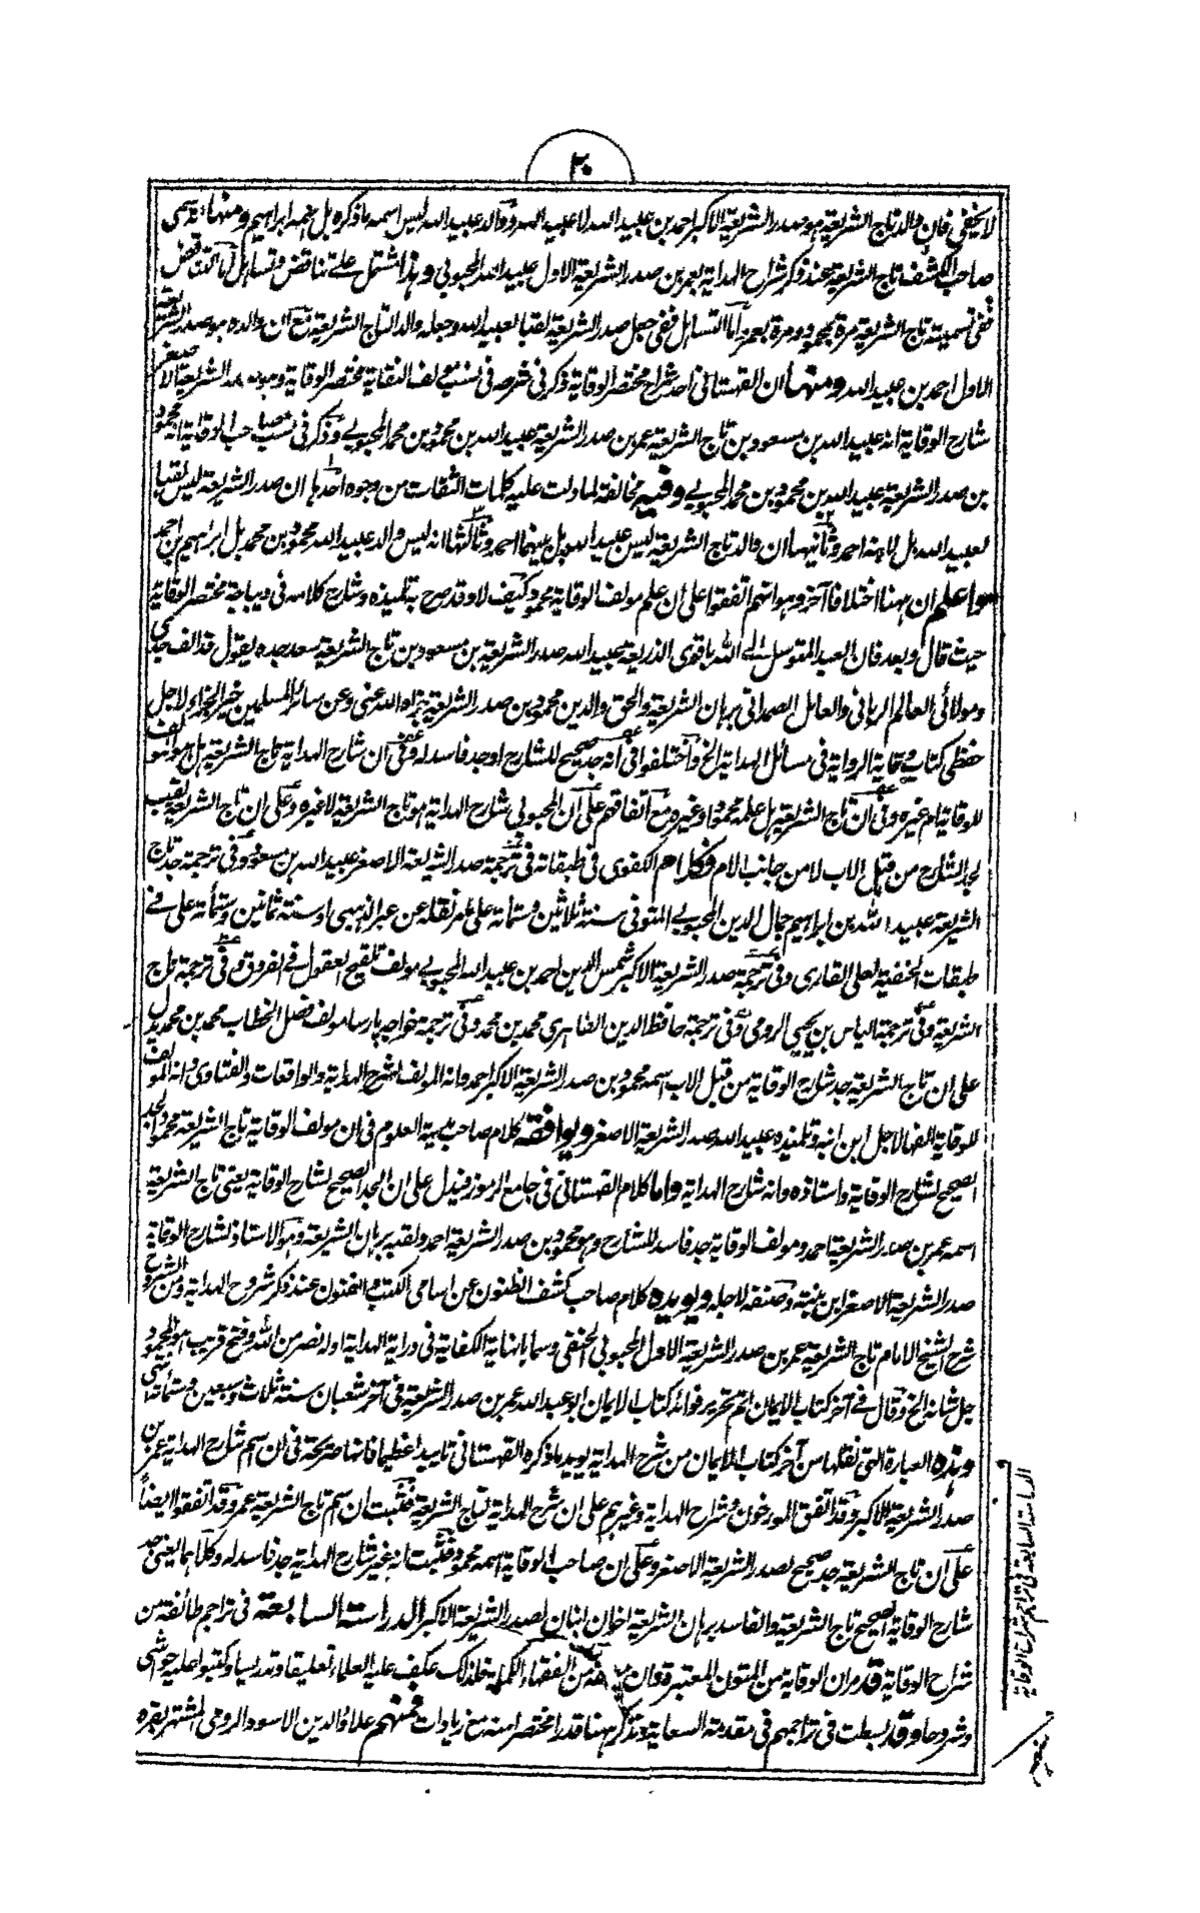 ٢٠
لا يخفى فان والد تاج الشريعة هو صدر الشريعة الاكبر احمد بن عبيد الله لا عبيد الله ووالد عبيد الله ليس اسمه ما ذكره بل اسمه ابراهيم ومنها انه سمى
صاحب الكشف تاج الشريعة عند ذكر شراح الهداية بعمر بن صدر الشريعة الاول عبيد الله المحبوبي وهذا مشتمل على تناقض وتساهل اما التناقض
ففى تسمية تاج الشريعة مرة بمحمود ومرة بعمر واما التساهل ففى جعل صدر الشريعة لقبا لعبيد الله وجعله والد التاج الشريعة مع ان والده هو صدر الشريعة
الاول احمد بن عبيد الله ومنها ان القهستانى احد شراح مختصر الوقاية ذكر فى شرحه فى نسب مولف النقاية مختصر الوقاية وهو صدر الشريعة الاصغر
شارح الوقاية انه عبيد الله بن مسعود بن تاج الشريعة عمر بن صدر الشريعة عبيد الله بن محمود بن محمد المحبوبي وذكر فى نسب صاحب الوقاية انه محمود
بن صدر الشريعة عبيد الله بن محمود بن محمد المحبوبي وفيه مخالفة لما دلت عليه كلمات الثقات من وجوه احدها ان صدر الشريعة ليس لقبا
لعبيد الله بل لابنه احمد وثانيها ان والد تاج الشريعة ليس عبيد الله بل بينهما احمد وثالثها انه ليس والد عبيد الله محمود بن محمد بل ابراهيم بن احمد
واعلم ان ههنا اختلافا آخر وهو انهم اتفقوا على ان علم مولف الوقاية محمود كيف لا وقد صرح به تلميذه وشارح كلامه فى ديباجة مختصر الوقاية
حيث قال وبعد فان العبد المتوسل الى الله باقوى الذريعة عبيد الله صدر الشريعة بن مسعود بن تاج الشريعة سعد جده يقول قد الف جدى
ومولائى العالم الربانى والعامل الصمدانى برهان الشريعة والحق والدين محمود بن صدر الشريعة جزاه الله عنى وعن سائر المسلمين خير الجزاء لاجل
حفظى كتاب وقاية الرواية فى مسائل الهداية الخ واختلفوا فى انه جد صحيح للشارح او جد فاسد له وفى ان شارح الهداية تاج الشريعة هل هو مولف
للوقاية ام غيره وفى ان تاج الشريعة هل علمه محمود او غيره مع اتفاقهم على ان المحبوبي شارح الهداية هو تاج الشريعة لا غيره وعلى ان تاج الشريعة لقب
لجد الشارح من قبل الاب لا من جانب الام فكلام الكفوى فى طبقاته فى ترجمة صدر الشريعة الاصغر عبيد الله بن مسعود وفى ترجمة جد تاج
الشريعة عبيد الله بن ابراهيم جمال الدين المحبوبي المتوفى سنة ثلاثين وستمائة على ما مر نقله عن عبر الذهبى او سنة ثمانين وستمائة على ما فى
طبقات الحنفية لعلى القارى وفى ترجمة صدر الشريعة الاكبر شمس الدين احمد بن عبيد الله المحبوبي مولف تلقيح العقول فى الفروق وفى ترجمة تاج
الشريعة وفى ترجمة الياس بن يحيى الرومى وفى ترجمة حافظ الدين الطاهرى محمد بن محمد وفى ترجمة خواجه پارسا مولف فصل الخطاب محمد بن محمد يدل
على ان تاج الشريعة جد شارح الوقاية من قبل الاب اسمه محمود بن صدر الشريعة الاكبر احمد وانه المولف لشرح الهداية والواقعات والفتاوى وانه المولف
للوقاية الفها لاجل ابن ابنه وتلميذه عبيد الله صدر الشريعة الاصغر ويوافقه كلام صاحب مدينة العلوم فى ان مولف الوقاية تاج الشريعة محمود الجد
الصحيح لشارح الوقاية واستاذه وانه شارح الهداية واما كلام القهستانى فى جامع الرموز فيدل على ان الجد الصحيح لشارح الوقاية يعنى تاج الشريعة
اسمه عمر بن صدر الشريعة احمد ومولف الوقاية جد فاسد للشارح وهو محمود بن صدر الشريعة احمد ولقبه برهان الشريعة وهو الاستاذ لشارح الوقاية
صدر الشريعة الاصغر ابن بنته وصنفه لاجله ويويده كلام صاحب كشف الظنون عن اسامى الكتب والفنون عند ذكر شروح الهداية ومن الشروح
شرح الشيخ الامام تاج الشريعة عمر بن صدر الشريعة الاول المحبوبي الحنفى وسماه نهاية الكفاية فى دراية الهداية اوله نصر من الله وفتح قريب هو المحمود
جل شانه الخ وقال فى آخر كتاب الايمان اتم تحرير فوائد كتاب الايمان ابو عبد الله عمر بن صدر الشريعة فى آخر شعبان سنة ثلاث وسبعين وستمائة انتهى
وهذه العبارة التى نقلها من آخر كتاب الايمان من شرح الهداية يويد ما ذكره القهستانى تاييدا عظيما فانها صريحة فى ان اسم شارح الهداية عمر بن
صدر الشريعة الاكبر وقد اتفق المورخون وشراح الهداية وغيرهم على ان شرح الهداية لتاج الشريعة فثبت ان اسم تاج الشريعة عمر وقد اتفقوا ايضاً
على ان تاج الشريعة جد صحيح لصدر الشريعة الاصغر وعلى ان صاحب الوقاية اسمه محمود فثبت انه غير شارح الهداية جد فاسد له وكلاهما يعنى جد
شارح الوقاية الصحيح تاج الشريعة والفاسد برهان الشريعة اخوان ابنان لصدر الشريعة الاكبر الدراسة السابعة فى تراجم طائفة من
شراح الوقاية قد مر ان الوقاية من المتون المعتبرة وان مولفه من الفقهاء الكملة فلذلك عكف عليه العلماء تعليقا وتدريسا وكتبوا عليه حواشى
وشروحا وقد بسطت فى تراجمهم فى مقدمة السعاية ونذكر ههنا قدرا مختصرا منه مع زيادات فمنهم علاؤ الدين الاسود الرومى المشتهر بقره